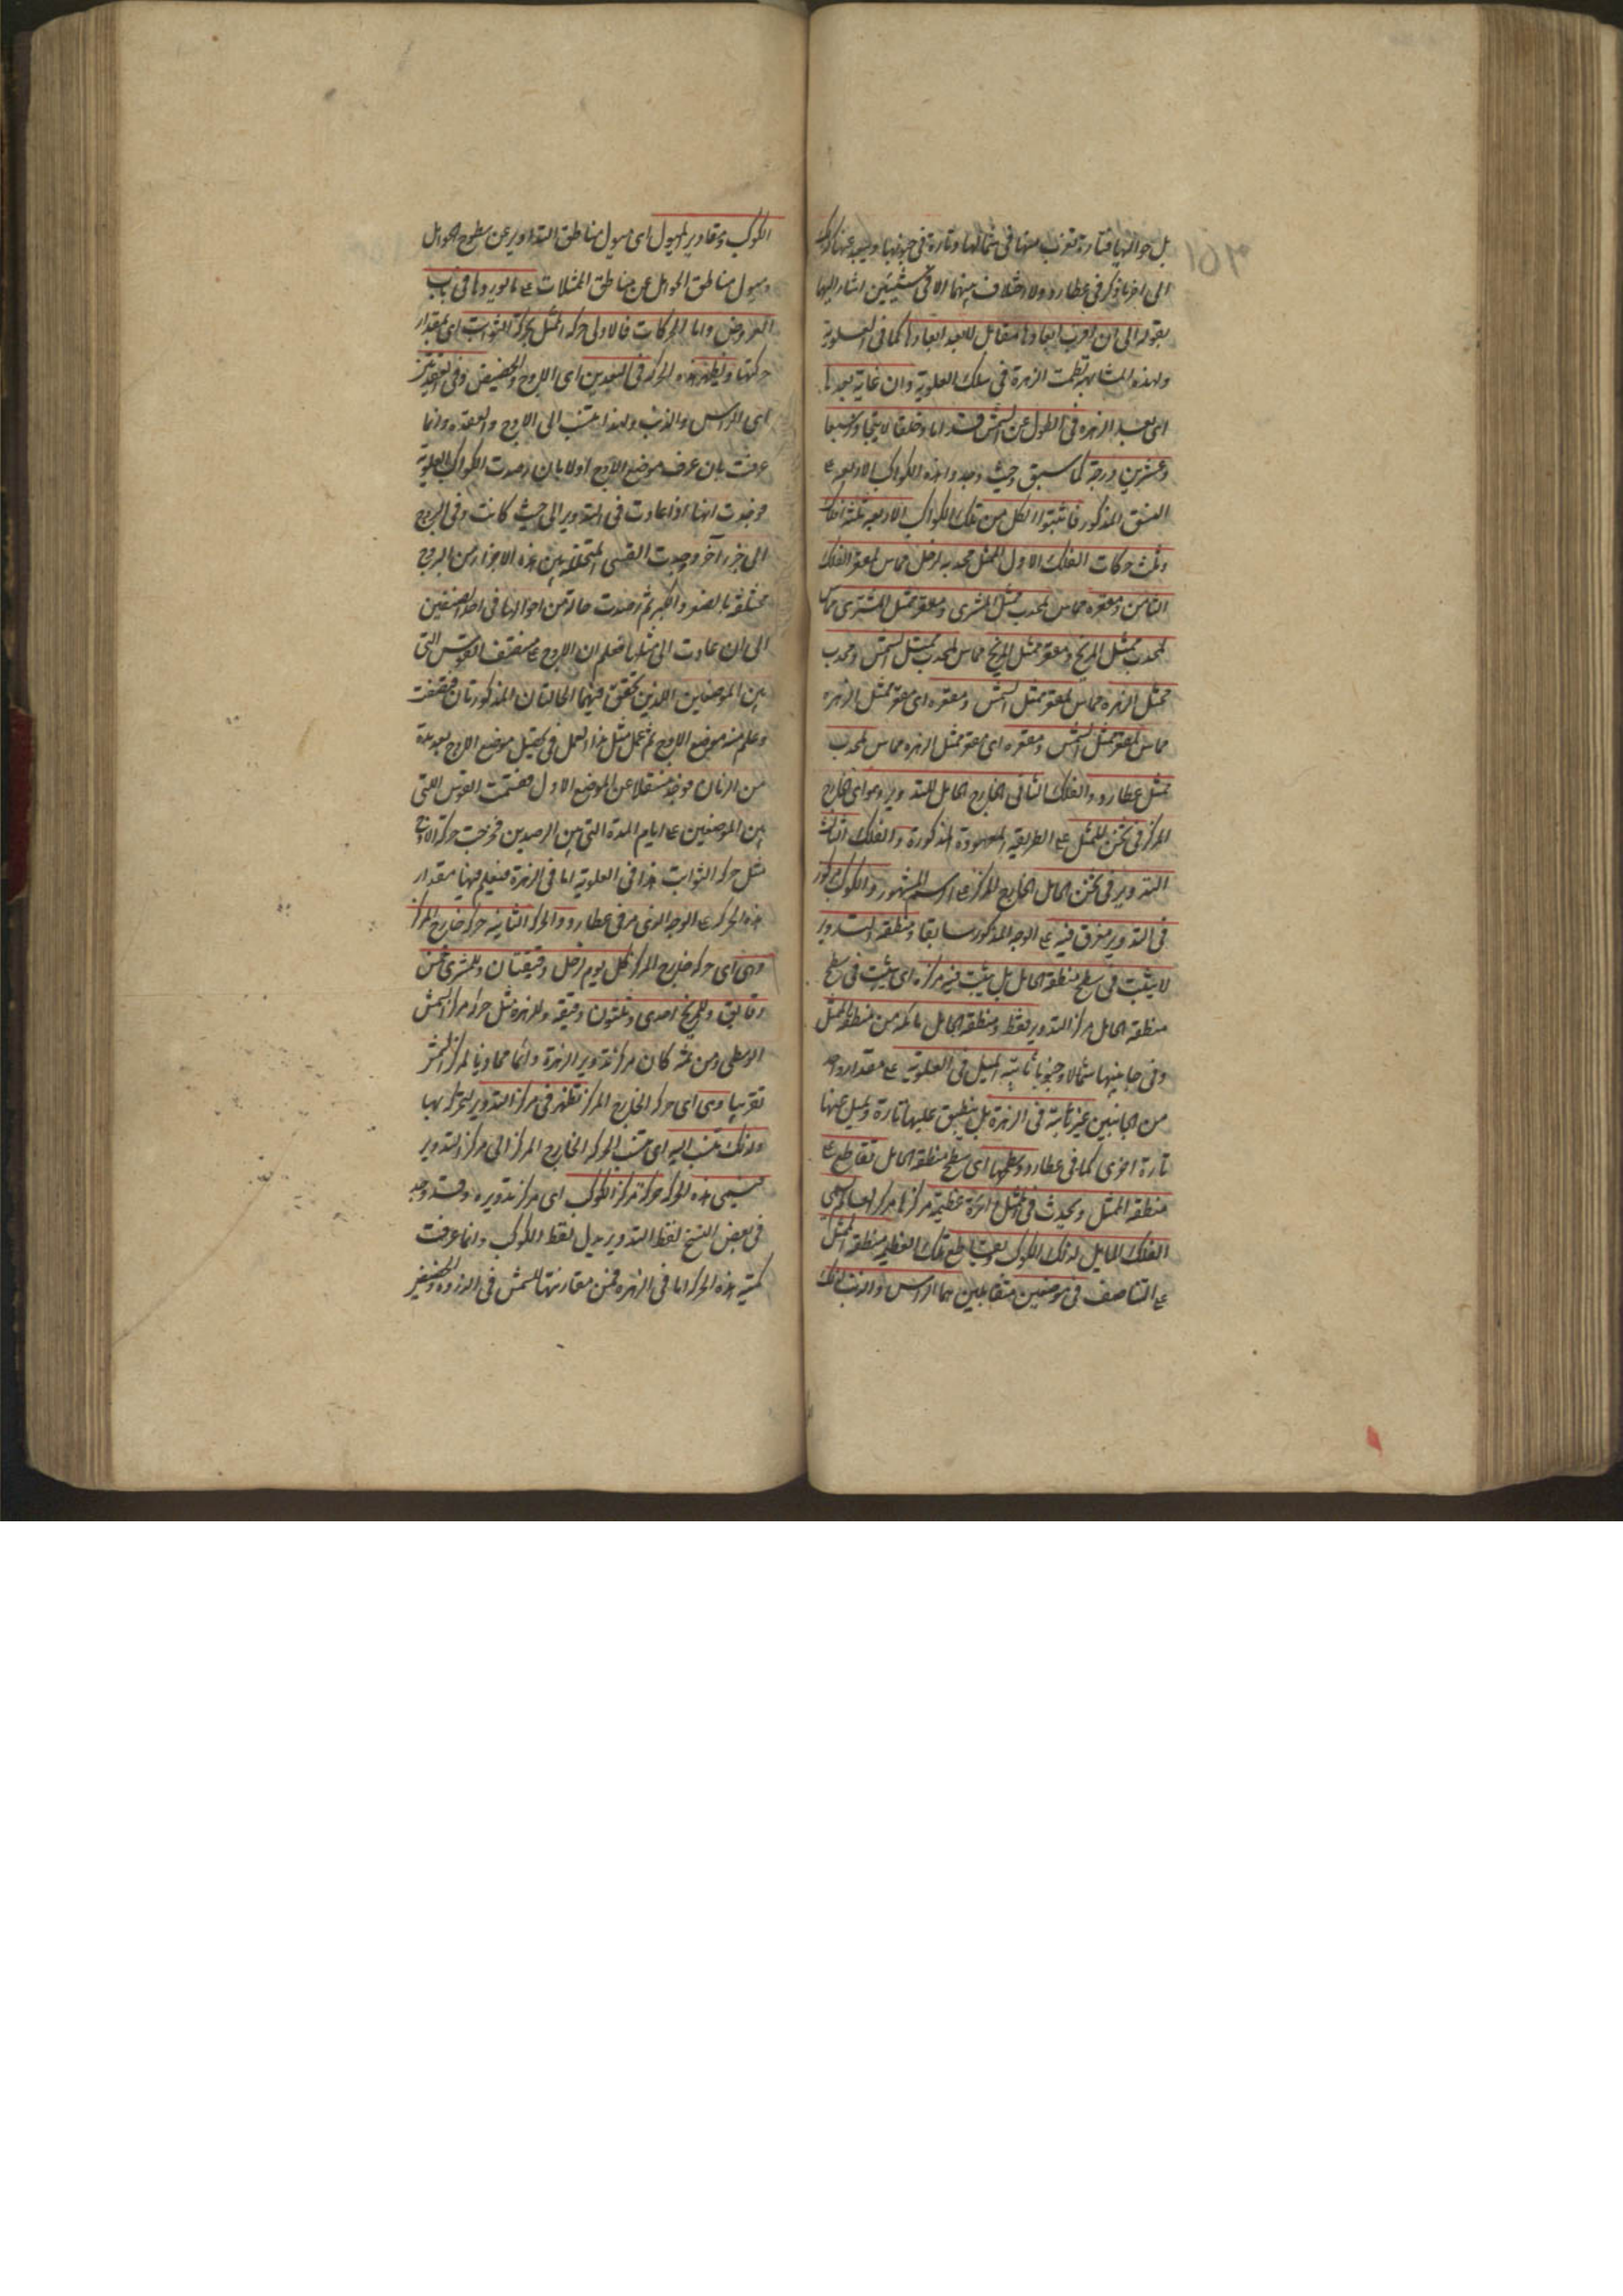 بل حواليها فتارة تقرب منها فى شمالها وتارة فى جنوبها ويبعد عنها كذلك
الى آخر ما ذكر فى عطارد ولا اختلاف بينهما الا فى شيئين اشار اليهما
بقوله الى ان اقرب ابعادها مقابل للابعد ابعادها كما فى العلوية
ولهذه المشابهة نظمت الزهرة فى سلك العلوية وان غاية بعدها
اى بعد الزهرة فى الطول عن الشمس قداما وخلفا لا يتجاوز سبعا
وعشرين درجة كما سبق وحيث وجدوا هذه الكواكب الاربعة ع
النسق المذكور فاثبتوا لكل من تلك الكواكب الاربعة ثلثة افلاك
وثلث حركات الفلك الاول الممثل محدبه لزحل مماس لمقعر الفلك
الثامن ومقعره مماس لمحدب ممثل المشترى ومقعر ممثل المشترى مماس
لمحدب ممثل المريخ ومقعر ممثل المريخ مماس لمحدب ممثل الشمس ومحدب
ممثل الزهرة مماس لمقعر ممثل الشمس ومقعره اى مقعر ممثل الزهرة
مماس لمقعر ممثل الشمس ومقعره اى مقعر ممثل الزهرة مماس لمحدب
ممثل عطارد والفلك الثانى الخارج الحامل للتدوير وهو اى الخارج
المركز فى ثخن الممثل ع الطريقة المعهودة المذكورة والفلك الثالث
التدوير فى ثخن الحامل الخارج المركز ع الرسم المشهور والكوكب مركوز
فى التدوير مغرق فيه ع الوجه المذكور سابقا ومنطقة التدوير
لا يثبت فى سطح منطقة الحامل بل يثبت فيه مركزه اى يثبت فى سطح
منطقة الحامل مركز التدوير فقط ومنطقة الحامل مائلة من منطقة الممثل
وفى جانبيها شمالا وجنوبا ثابتة الميل فى العلوية ع مقدار واحد
من الجانبين غير ثابتة فى الزهرة بل ينطبق عليها تارة ويميل عنها
تارة اخرى كما فى عطارد وسطحها اى سطح منطقة الحامل تقاطع ع
منطقة الممثل ويحدث فى الممثل دائرة عظيمة مركزها مركز العالم يسمى
الفلك المايل لذلك الكوكب ويتقاطع تلك العظيمة منطقة الممثل
ع التناصف فى موضعين متقابلين هما الرأس والذنب لذلك
الكوكب ومقادير الميول اى ميول مناطق التداوير عن سطوح الحوامل
وميول مناطق الحوامل عن مناطق الممثلات ع ما نوردها فى باب
العروض واما الحركات فالاولى حركة الممثل بحركة الثوابت اى بمقدار
حركتها ويظهر هذه الحركة فى البعدين اى الاوج والحضيض وفى العقدتين
اى الرأس والذنب ولهذا تنسب الى الاوج والعقدة وانما
عرفت بان عرف موضع الاوج اولا بان رصدت الكواكب العلوية
فوجدت انها اذا عادت فى التدوير الى حيث كانت وفى البروج
الى جزء آخر وجدت القسى المتخللة بين هذه الاجزاء من البروج
مختلفة بالصغر والكبر ثم رصدت حالة من احوالها فى احد النصفين
الى ان عادت الى مثلها فعلم ان الاوج ع منتصف القوس التى
بين الموضعين اللذين تحقق فيهما الحالتان المذكورتان فنصفت
وعلم منه موضع الاوج ثم عمل مثل هذا العمل فى تحصيل موضع الاوج بعد مدة
من الزمان فوجد منتقلا عن الموضع الاول فقسمت القوس التى
بين الموضعين ع ايام المدة التى بين الرصدين فخرجت حركة الاوج
مثل حركة الثوابت هذا فى العلوية اما فى الزهرة فيعلم فيها مقدار
هذه الحركة ع الوجه الذى مر فى عطارد والحركة الثانية حركة خارج المركز
وهى اى حركة خارج المركز لكل يوم لزحل دقيقتان وللمشترى خمس
دقايق وللمريخ احدى وثلثون دقيقة وللزهرة مثل حركة مركز الشمس
الوسطى ومن ثمه كان مركز تدوير الزهرة دائما محاذيا لمركز الشمس
تقريبا وهى اى حركة الخارج المركز تظهر فى مركز التدوير لتحركه بها
ولذلك تنسب اليه اى تنسب الحركة الخارج المركز الى مركز التدوير
فيسمى هذه الحركة حركة مركز الكوكب اى مركز تدويره وقد وجد
فى بعض النسخ لفظ التدوير بدل لفظ الكوكب وانما عرفت
كمية هذه الحركة اما فى الزهرة فمن مقارنتها للشمس فى الذروة والحضيض